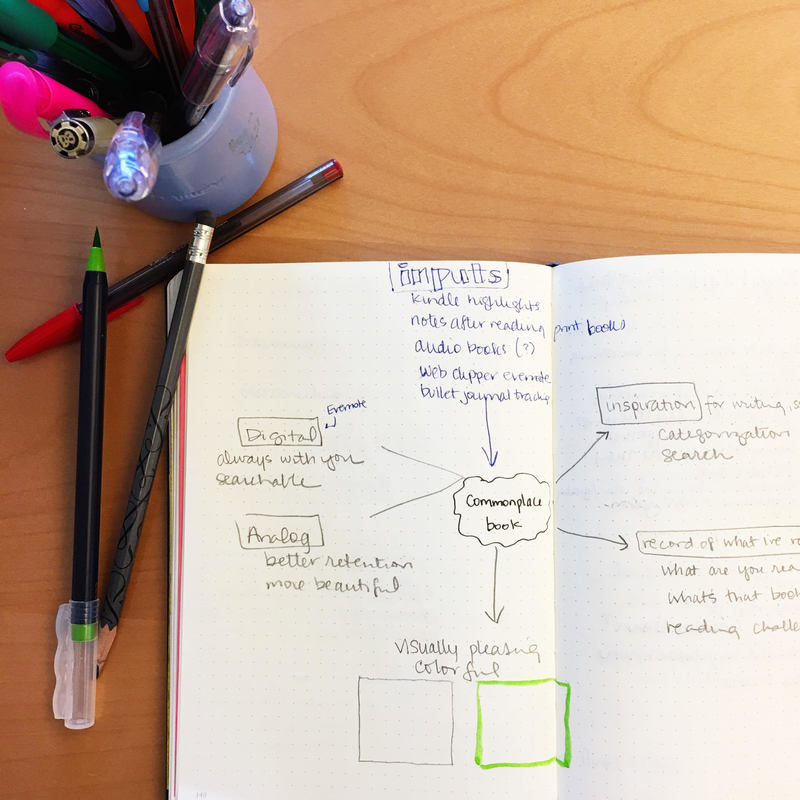 inputs
kindle highlights
notes after reading print books
audio books (?)
web clipper evernote
bullet journal tracking
Evernote
Digital
always with you
searchable
Analog
better retention
more beautiful
Commonplace
book
inspiration for writing,
categorization
search
record of what ive
what are you
whats that book
reading
visually pleasing
colorful